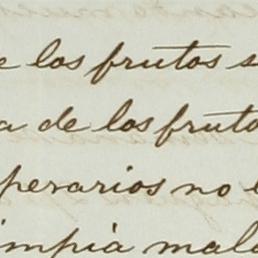 e los frutos s
a de los fruto
perarios no
impia mal